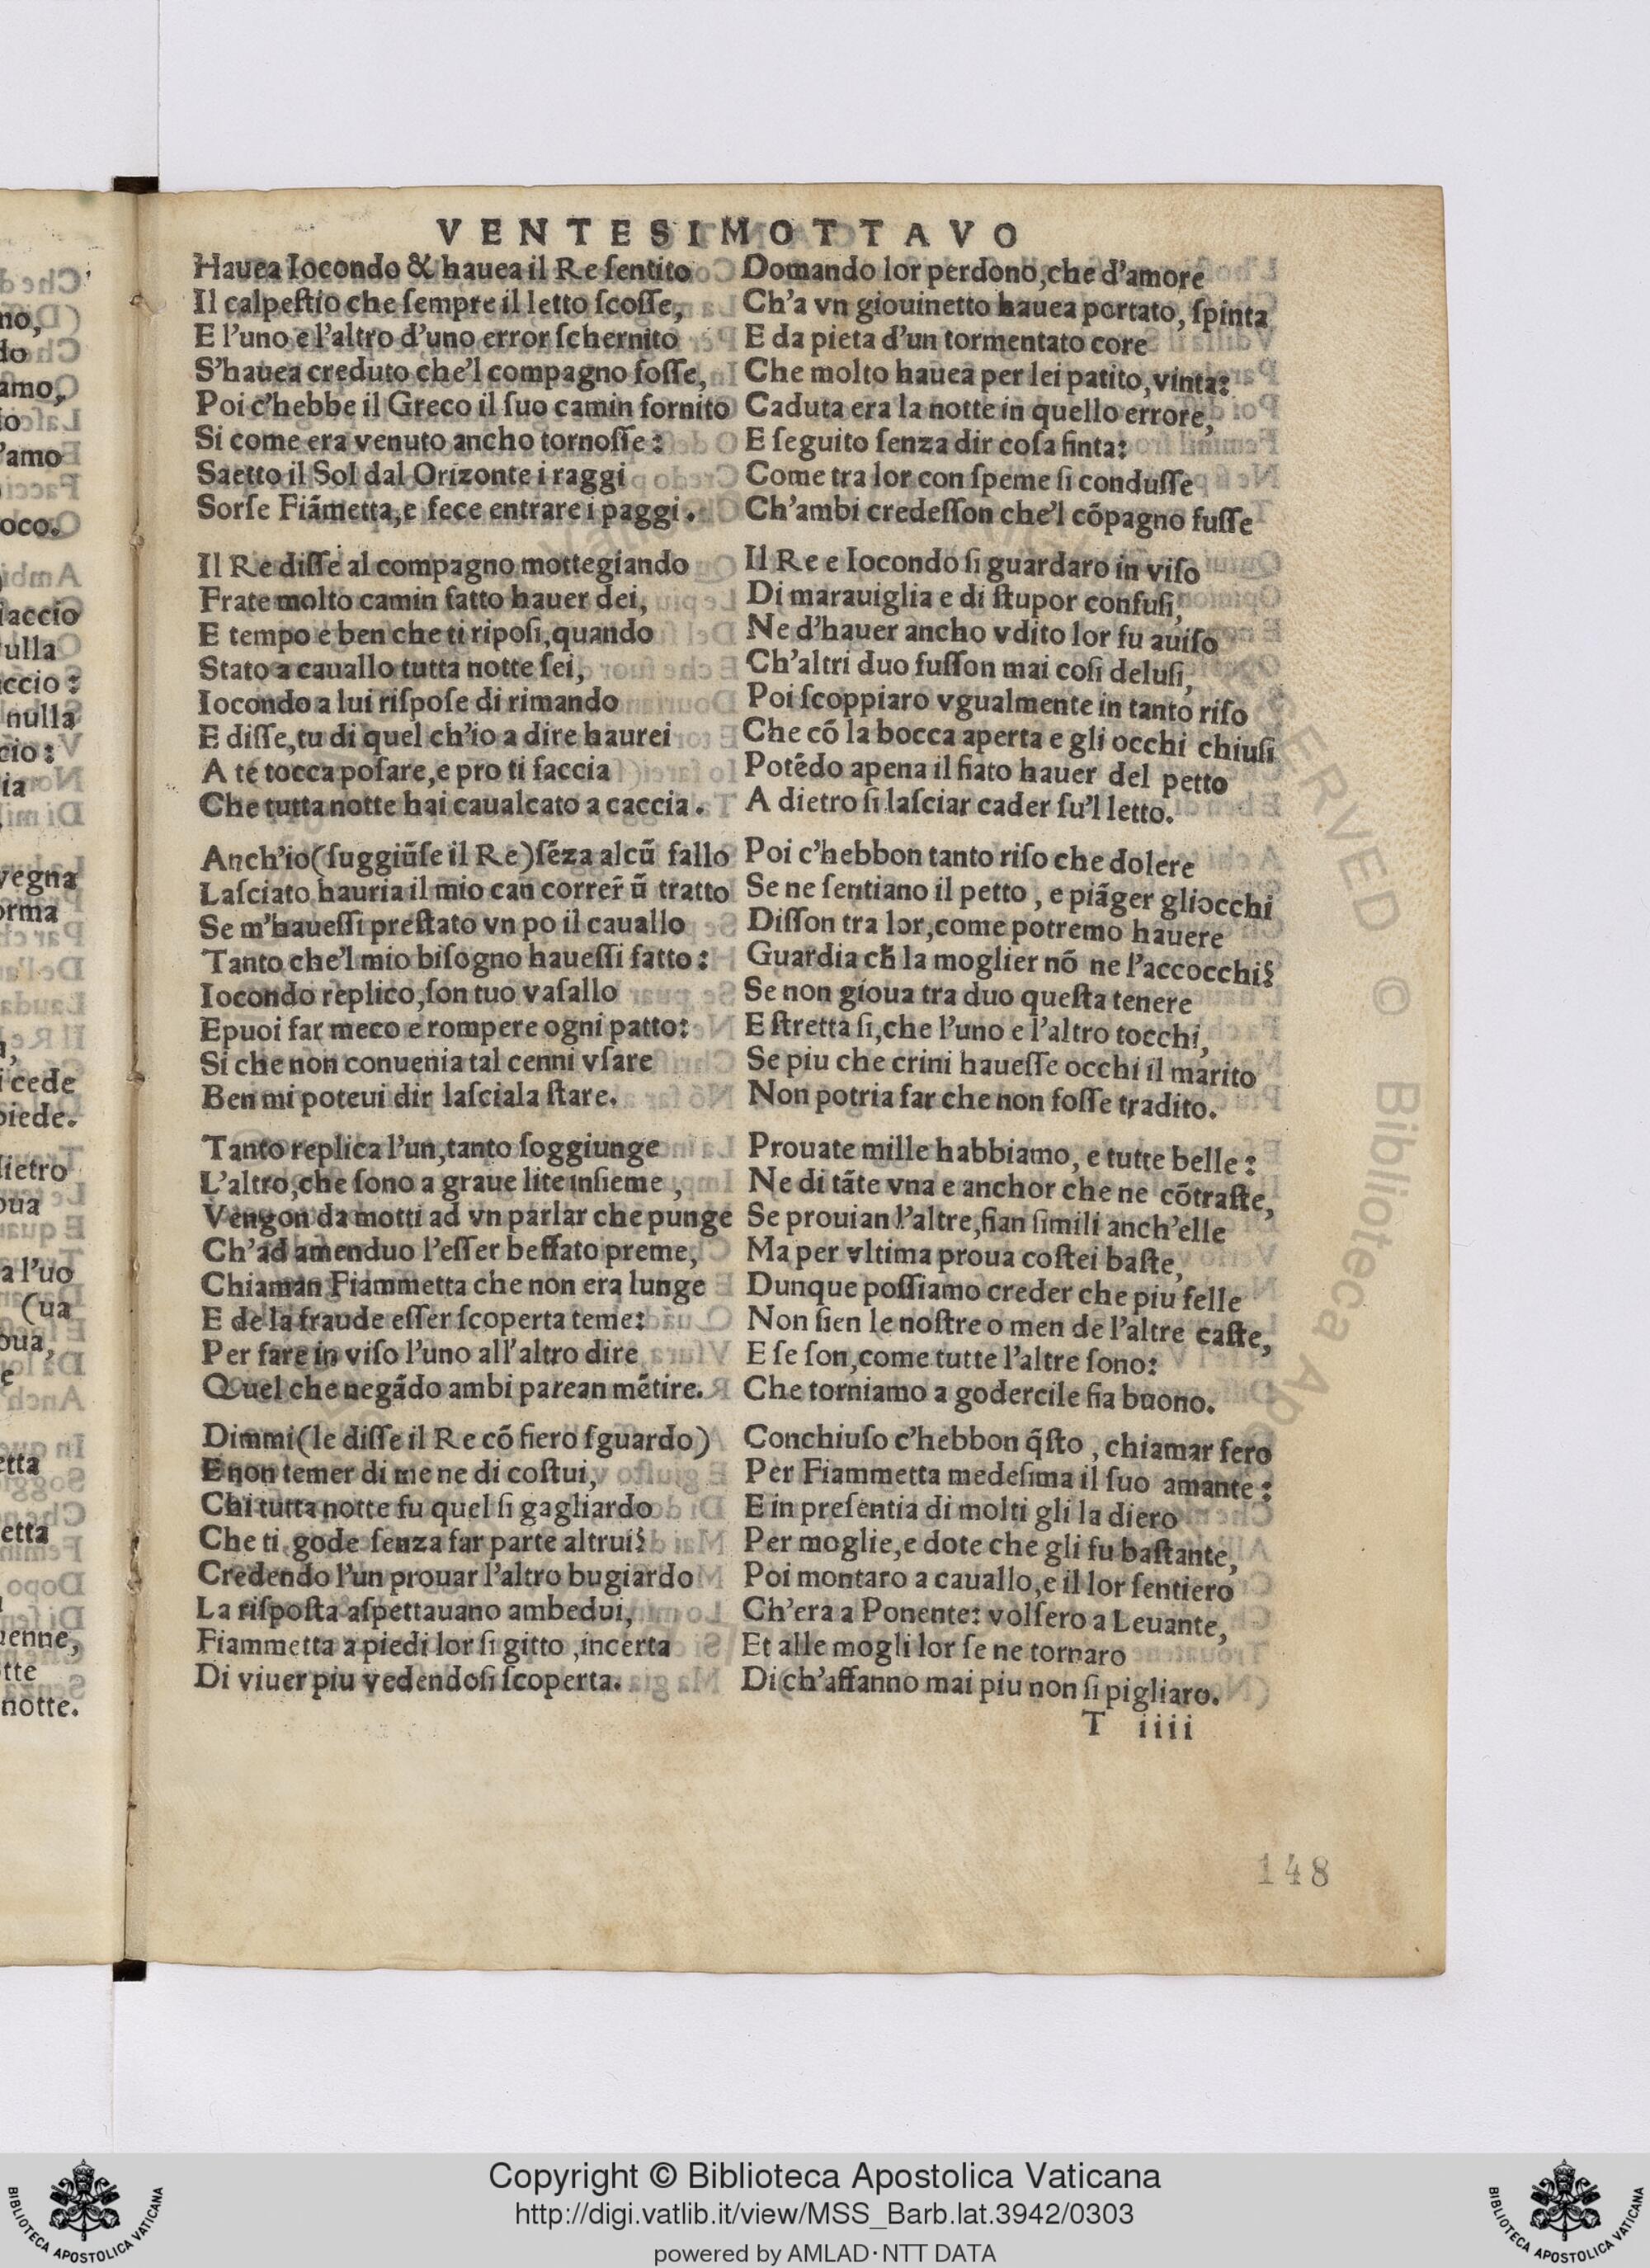 VENTESIMOTTAVO
Hauea Iocondo & hauea il Re ſentito
Il calpeſtio che ſempre il letto ſcoſſe,
E l'uno e l'altro d'uno error ſchernito
S'hauea creduto che'l compagno foſſe,
Poi c'hebbe il Greco il ſuo camin fornito
Si come era venuto ancho tornoſſe:
Saetto il Sol dal Orizonte i raggi
Sorſe Fiãmetta, e fece entrare i paggi.
Il Re diſſe al compagno mottegiando
Frate molto camin fatto hauer dei,
E tempo e ben che ti ripoſi, quando
Stato a cauallo tutta notte ſei,
Iocondo a lui riſpoſe di rimando
E diſſe, tu di quel ch'io a dire haurei
A te tocca poſare, e pro ti faccia
Che tutta notte hai caualcato a caccia.
Anch'io (ſuggiũſe il Re) ſẽza alcũ fallo
Laſciato hauria il mio can correr̃ ũ tratto
Se m'haueſſi preſtato vn po il cauallo
Tanto che'l mio biſogno haueſſi fatto:
Iocondo replico, ſon tuo vaſallo
E puoi far meco e rompere ogni patto:
Si che non conuenia tal cenni vſare
Ben mi poteui dir laſciala ſtare.
Tanto replica l'un, tanto ſoggiunge
L'altro, che ſono a graue lite inſieme,
Vengon da motti ad vn parlar che punge
Ch'ad amenduo l'eſſer beffato preme,
Chiaman Fiammetta che non era lunge
E de la fraude eſſer ſcoperta teme:
Per fare in viſo l'uno all'altro dire
Quel che negãdo ambi parean mẽtire.
Dimmi (le diſſe il Re cõ fiero ſguardo)
E non temer di me ne di coſtui,
Chi tutta notte fu quel ſi gagliardo
Che ti gode ſenza far parte altrui?
Credendo l'un prouar l'altro bugiardo
La riſpoſta aſpettauano ambedui,
Fiammetta a piedi lor ſi gitto, incerta
Di viuer piu vedendoſi ſcoperta.
Domando lor perdono, che d'amore
Ch'a vn giouinetto hauea portato, ſpinta
E da pieta d'un tormentato core
Che molto hauea per lei patito, vinta:
Caduta era la notte in quello errore,
E ſeguito ſenza dir coſa finta:
Come tra lor con ſpeme ſi conduſſe
Ch'ambi credeſſon che'l cõpagno fuſſe
Il Re e Iocondo ſi guardaro in viſo
Di marauiglia e di ſtupor confuſi,
Ne d'hauer ancho vdito lor fu auiſo
Ch'altri duo fuſſon mai coſi deluſi,
Poi ſcoppiaro vgualmente in tanto riſo
Che cõ la bocca aperta e gli occhi chiuſi
Potẽdo apena il fiato hauer del petto
A dietro ſi laſciar cader ſu'l letto.
Poi c'hebbon tanto riſo che dolere
Se ne ſentiano il petto, e piãger gliocchi
Diſſon tra lor, come potremo hauere
Guardia ch̃ la moglier nõ ne l'accocchi?
Se non gioua tra duo queſta tenere
E ſtretta ſi, che l'uno e l'altro tocchi,
Se piu che crini haueſſe occhi il marito
Non potria far che non foſſe tradito.
Prouate mille habbiamo, e tutte belle:
Ne di tãte vna e anchor che ne cõtraſte,
Se prouian l'altre, fian ſimili anch'elle
Ma per vltima proua coſtei baſte,
Dunque poſſiamo creder che piu felle
Non ſien le noſtre o men de l'altre caſte,
E ſe ſon, come tutte l'altre ſono:
Che torniamo a godercile fia buono.
Conchiuſo c'hebbon q̃ſto, chiamar fero
Per Fiammetta medeſima il ſuo amante:
E in preſentia di molti gli la diero
Per moglie, e dote che gli fu baſtante,
Poi montaro a cauallo, e il lor ſentiero
Ch'era a Ponente: volſero a Leuante,
Et alle mogli lor ſe ne tornaro
Di ch'affanno mai piu non ſi pigliaro.
T iiii
148
Copyright © Biblioteca Apostolica Vaticana
http://digi.vatlib.it/view/MSS_Barb.lat.3942/0303
powered by AMLAD·NTT DATA
BIBLIOTECA APOSTOLICA VATICANA
BIBLIOTECA APOSTOLICA VATICANA